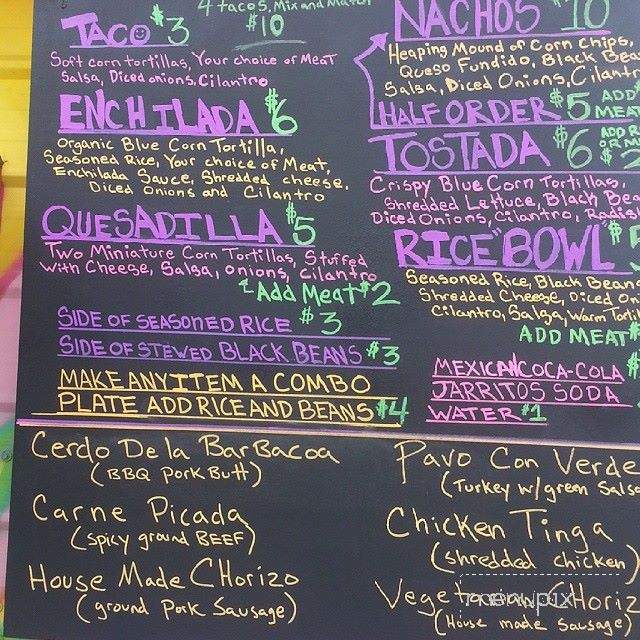 TACO $3
4 tacos, Mix and Match
$10
Soft corn tortillas, Your choice of Meat
Salsa, Diced onions, Cilantro
ENCHILADA $6
Organic Blue Corn Tortilla,
Seasoned Rice, Your choice of Meat,
Enchilada Sauce, Shredded cheese,
Diced Onions and Cilantro
QUESADILLA $5
Two Miniature Corn Tortillas, Stuffed
with Cheese, Salsa, onions, Cilantro
Add Meat $2
SIDE OF SEASONED RICE $3
SIDE OF STEWED BLACK BEANS $3
MAKE ANY ITEM A COMBO
PLATE ADD RICE AND BEANS $4
NACHOS $10
Heaping Mound of Corn Chips,
Queso Fundido, Black Bea
Salsa, Diced Onions, Cilant
HALF ORDER $5 ADD
MEA
TOSTADA $6 ADD
OR
Crispy Blue Corn Tortillas,
Shredded Lettuce, Black Bea
Diced Onions, Cilantro, Radis
RICE BOWL $5
Seasoned Rice, Black Beans
Shredded Cheese, Diced On
Cilantro, Salsa, Warm Torti
ADD MEAT $
MEXICAN COCA-COLA $
JARRITOS SODA
WATER $1
Cerdo De la BarBacoa
(BBQ Pork Butt)
Carne Picada
(spicy ground BEEF)
House Made CHorizo
(ground Pork Sausage)
Pavo Con Verde
(Turkey w/green Salsa
Chicken Tinga
(shredded chicken)
CHoriz
(House made sausage)
menupix